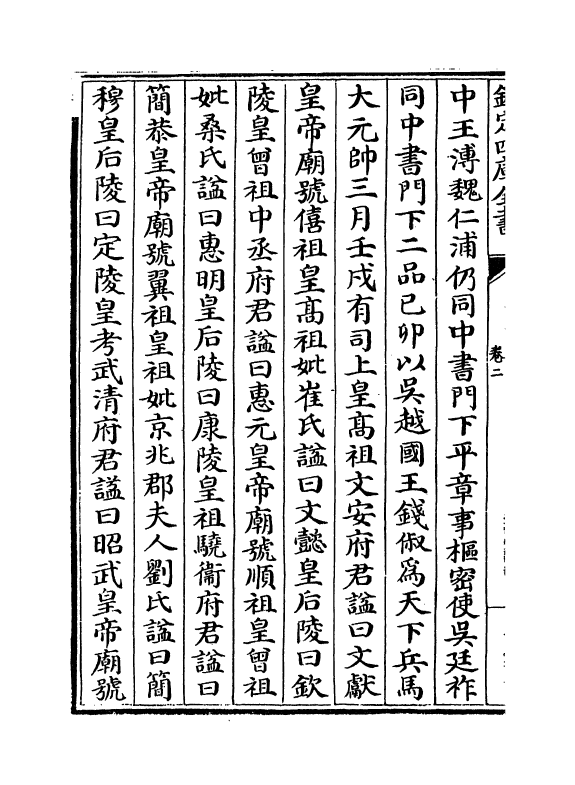 欽定四庫全書
卷二
中王溥魏仁浦仍同中書門下平章事樞密使吳廷祚
同中書門下二品己卯以吳越國王錢俶爲天下兵馬
大元帥三月壬戌有司上皇髙祖文安府君諡曰文獻
皇帝廟號僖祖皇髙祖妣崔氏諡曰文懿皇后陵曰欽
陵皇曾祖中丞府君諡曰惠元皇帝廟號順祖皇曾祖
妣桑氏諡曰惠明皇后陵曰康陵皇祖驍衞府君諡曰
簡恭皇帝廟號翼祖皇祖妣京兆郡夫人劉氏諡曰簡
穆皇后陵曰定陵皇考武清府君諡曰昭武皇帝廟號